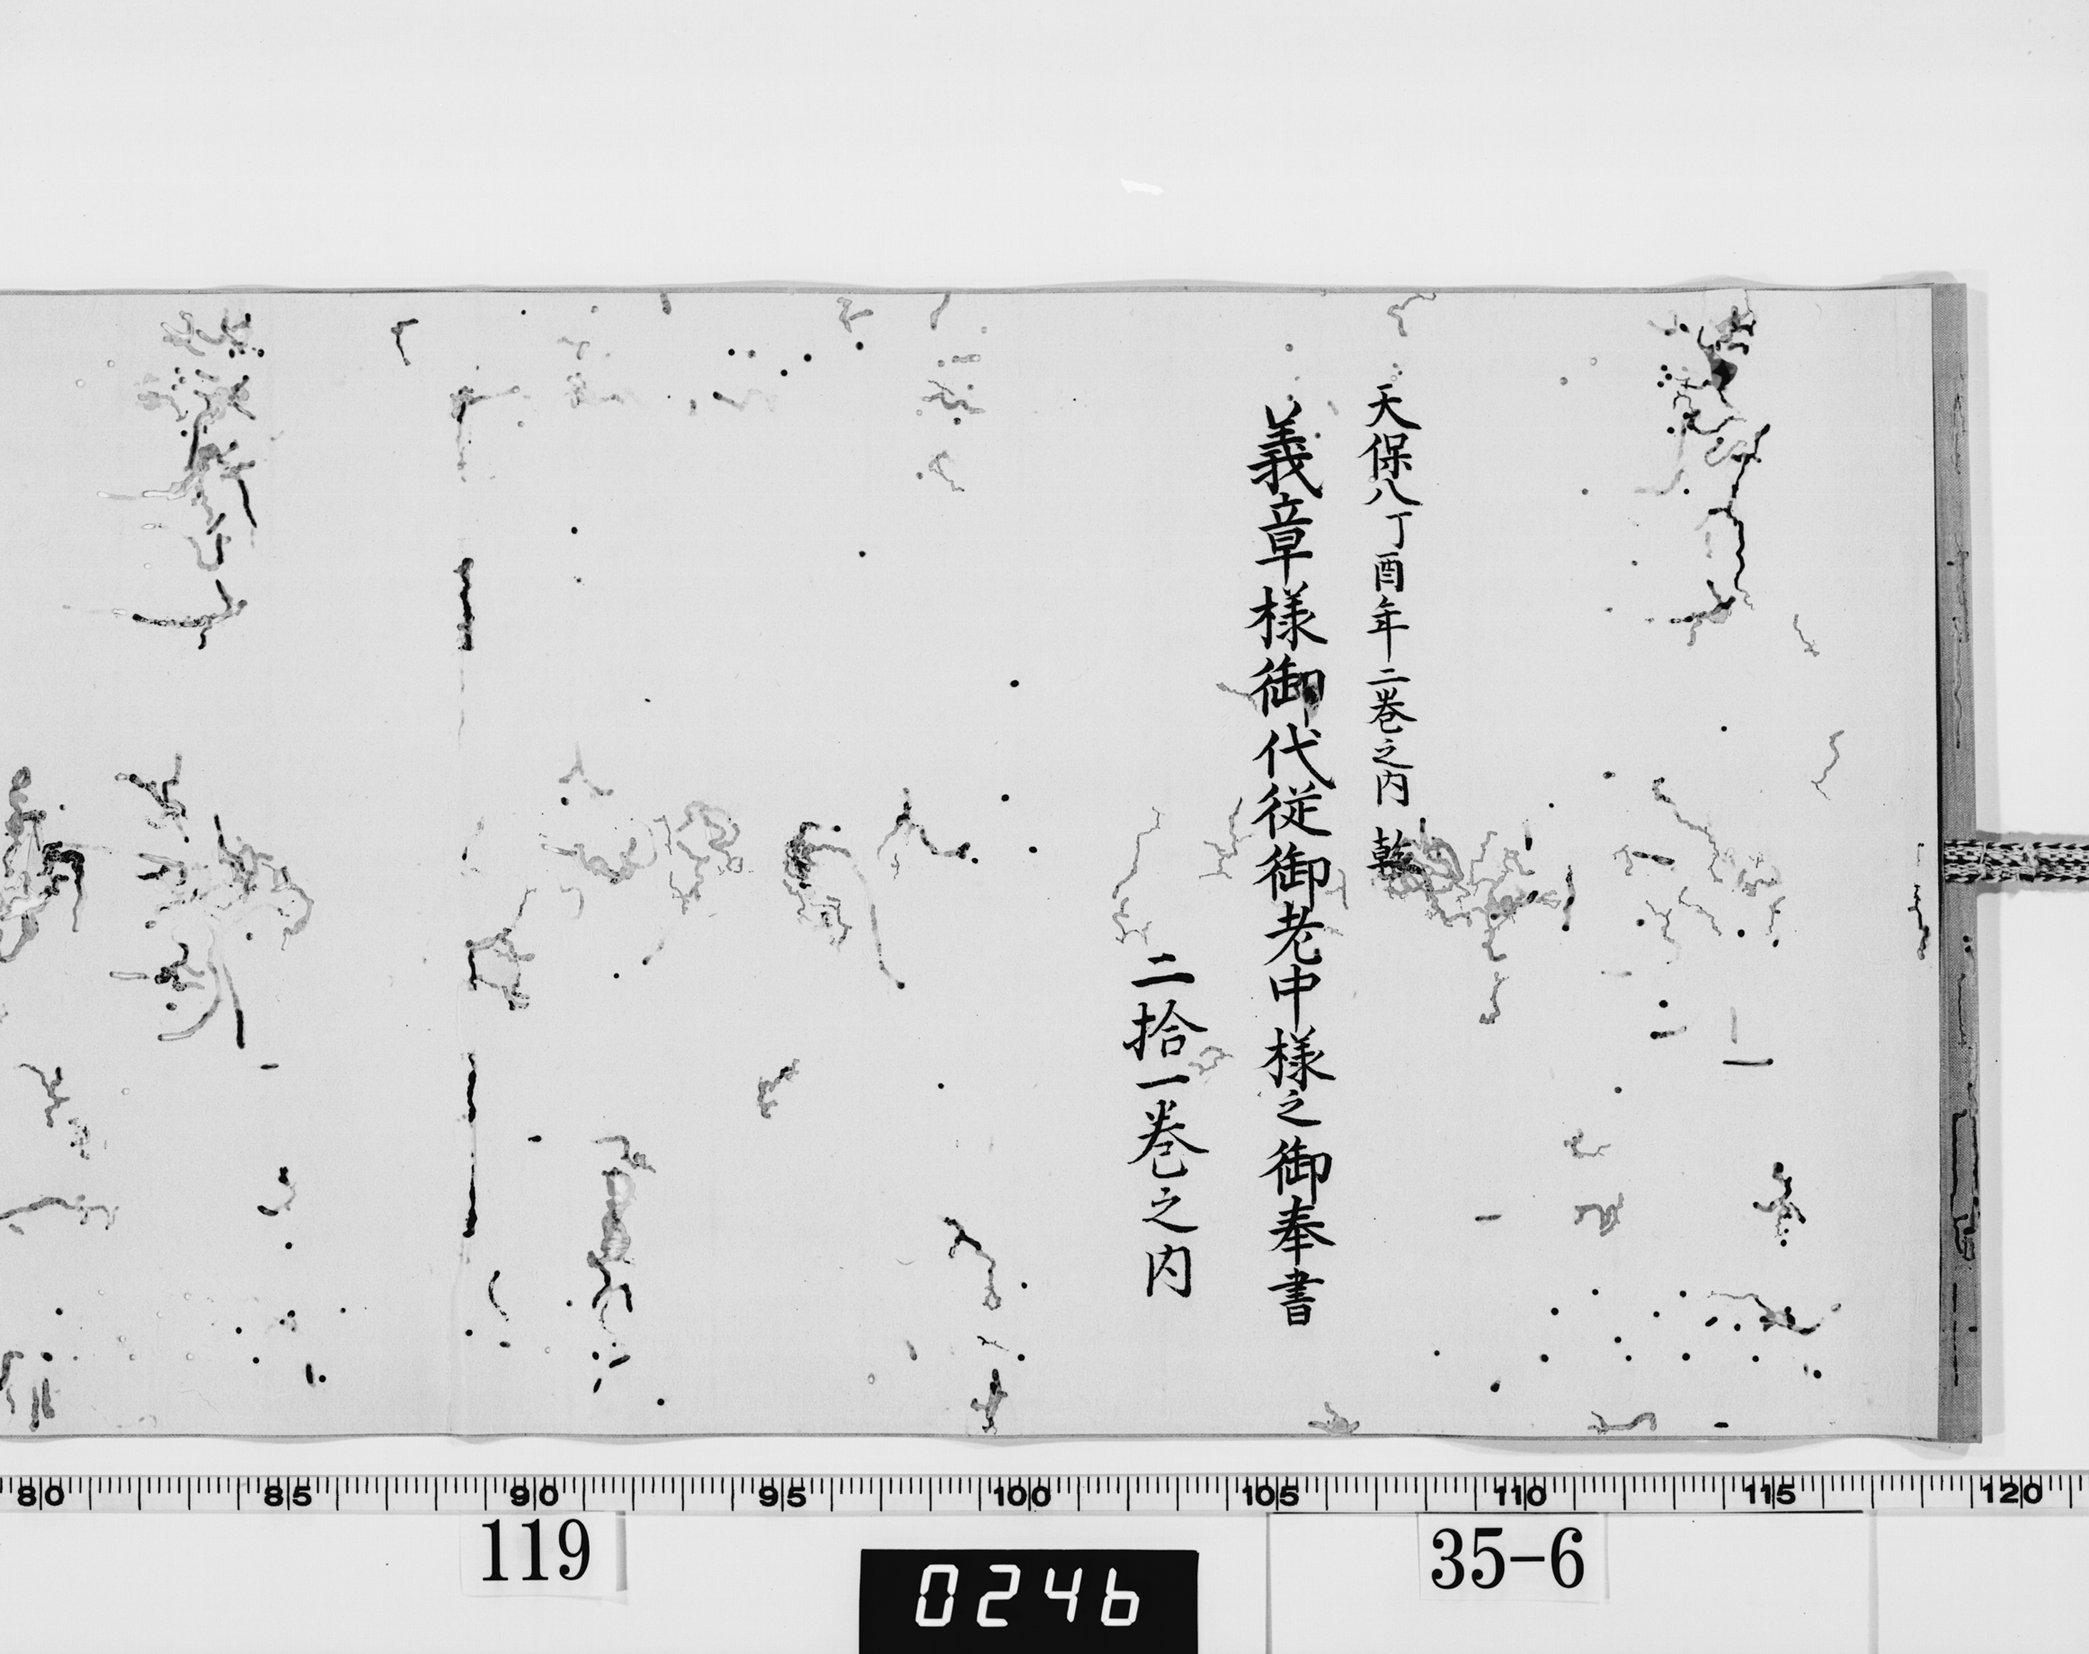 天保八丁酉年二巻之内 乾
義章様御代従御老中様之御奉書
二拾一巻之内
80 85 90 95 100 105 110 115 120
119
0246
35-6